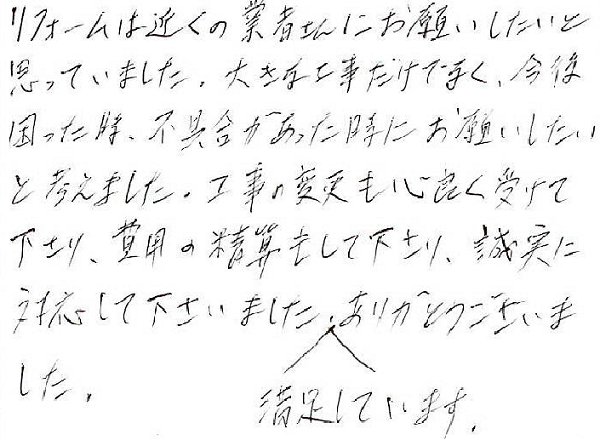 リフォームは近くの業者さんにお願いしたいと
思っていました。大きな工事だけでなく、今後
困った時、不具合があった時にお願いしたい
と考えました。工事の変更も心良く受けて
下さり、費用の精算もして下さり、誠実に
対応して下さいました。ありがとうございま
した。
満足しています。